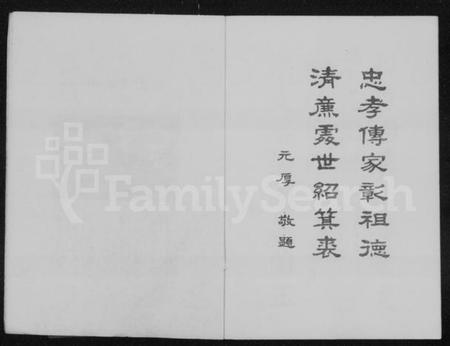 忠孝傳家彰祖德
清廉處世紹箕裘
元厚 敬題
FamilySearch